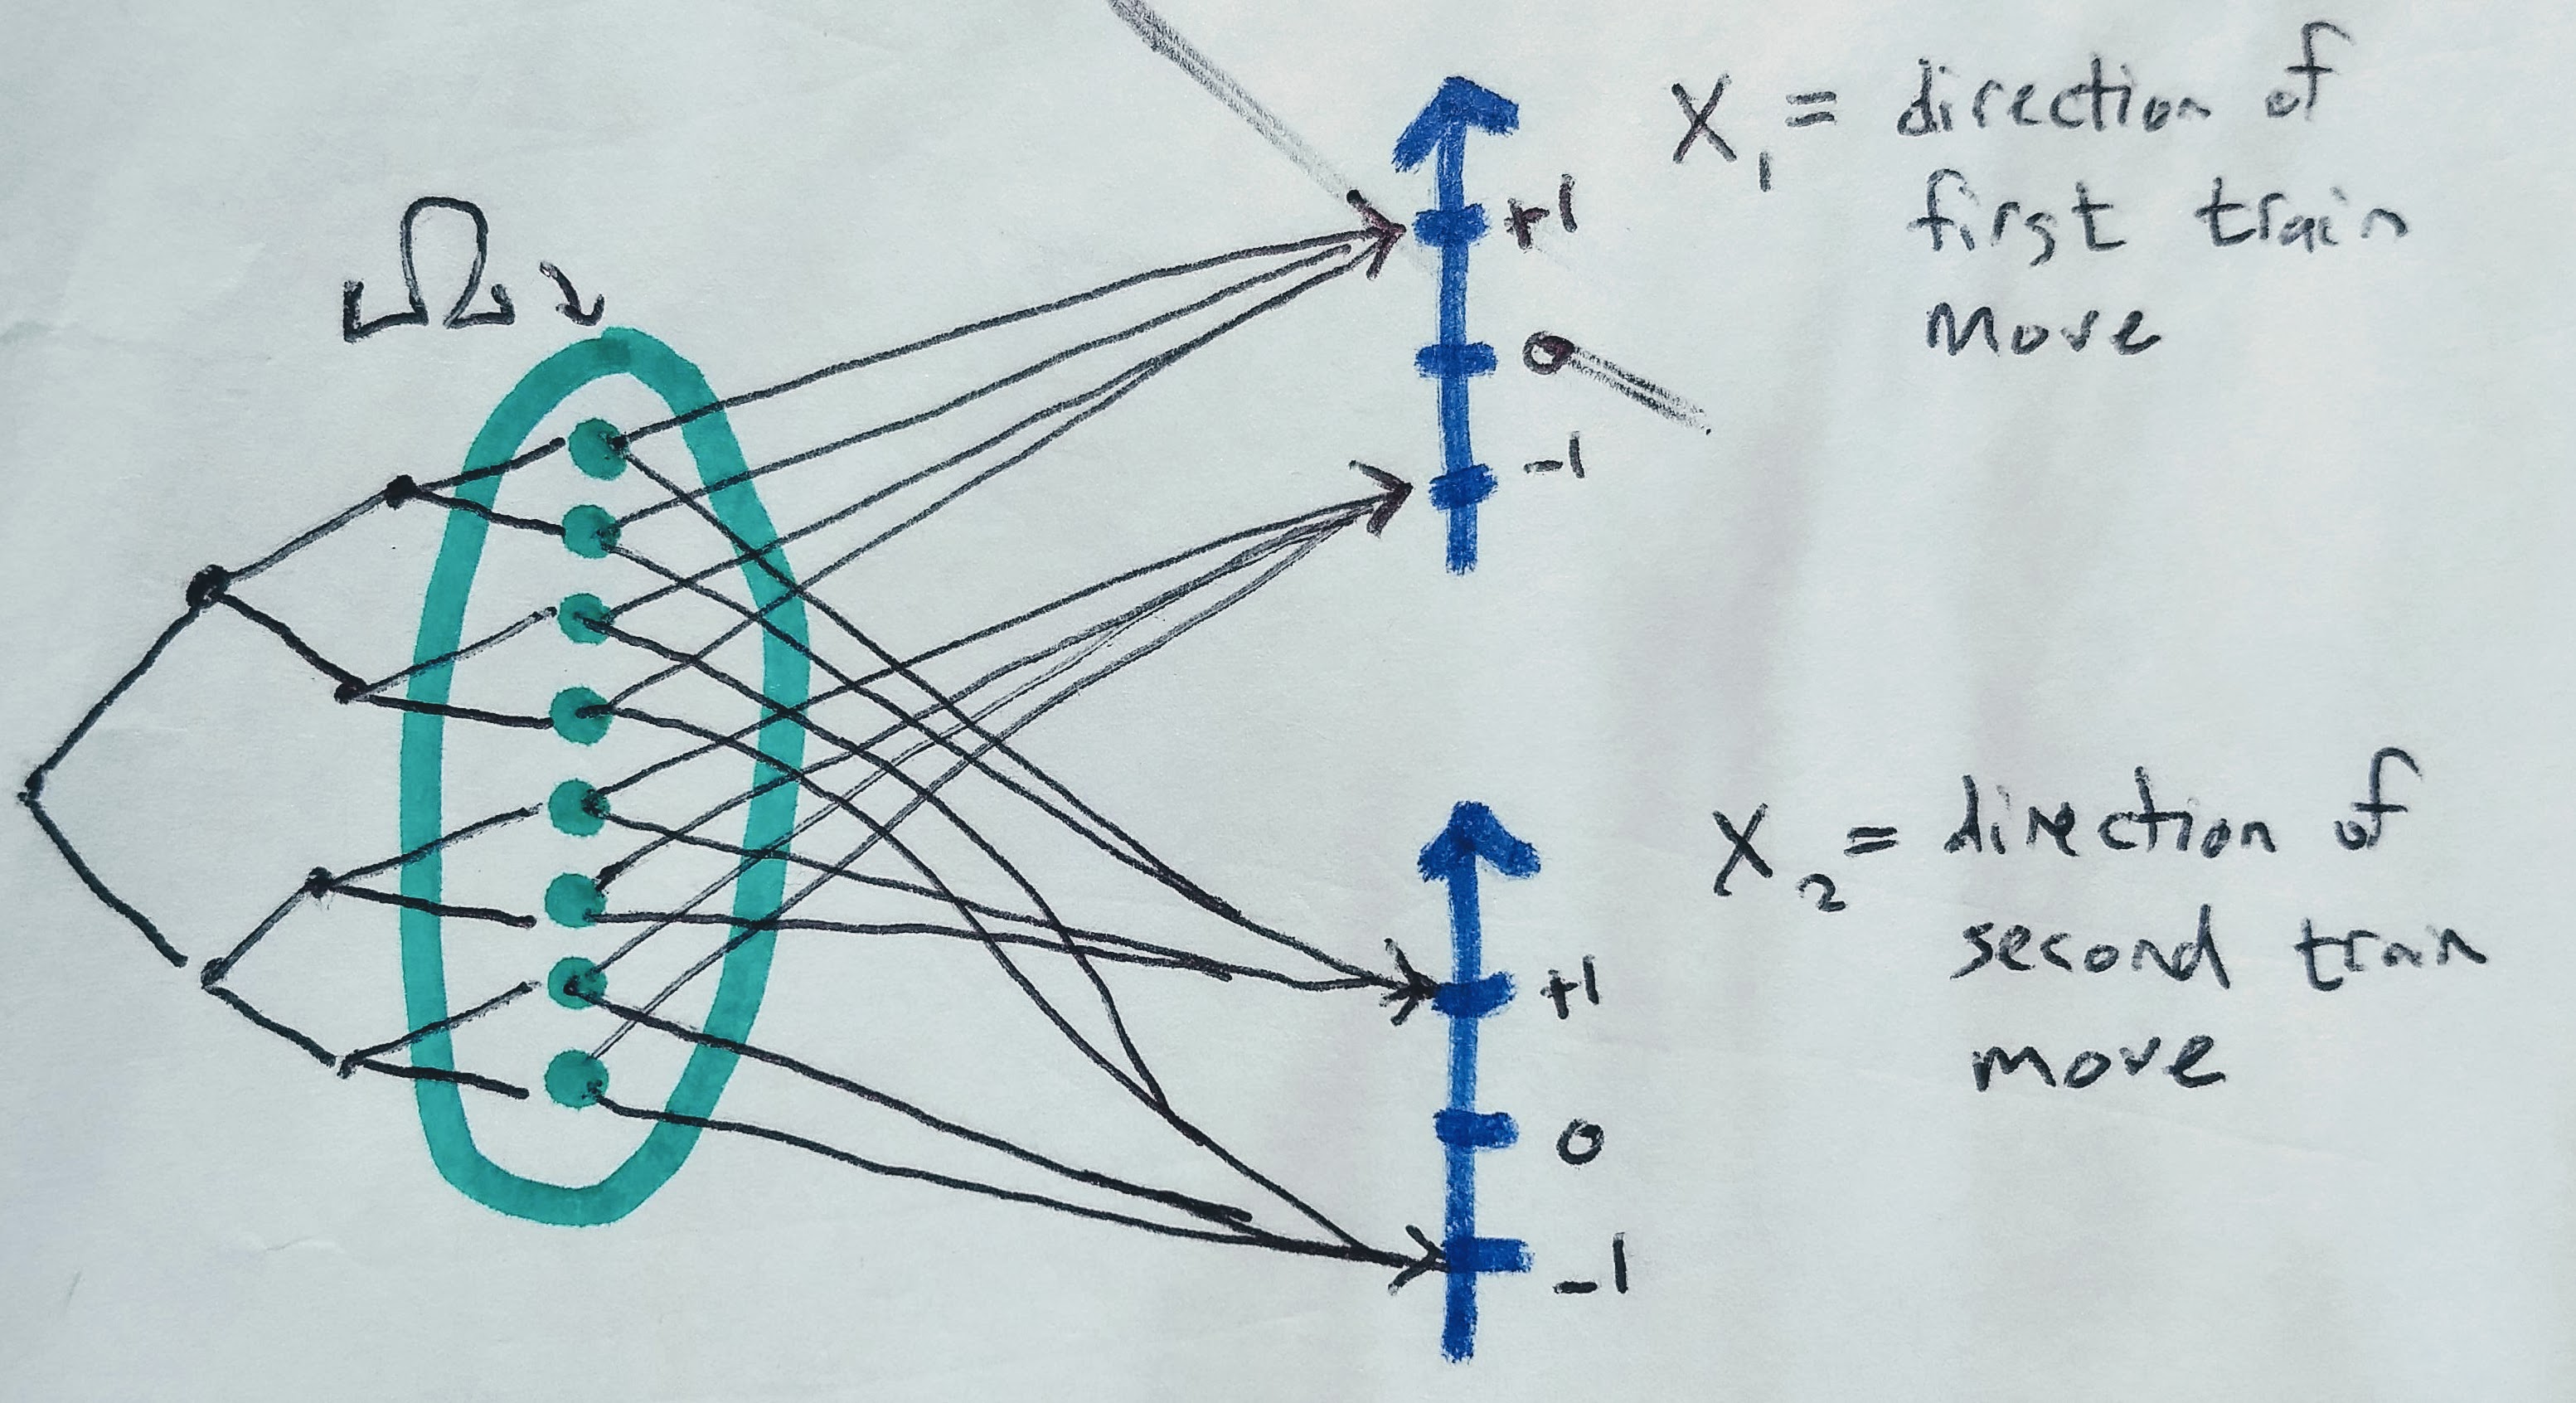 Ω
X₁ = direction of
first train
move
+1
0
-1
X₂ = direction of
second train
move
+1
0
-1